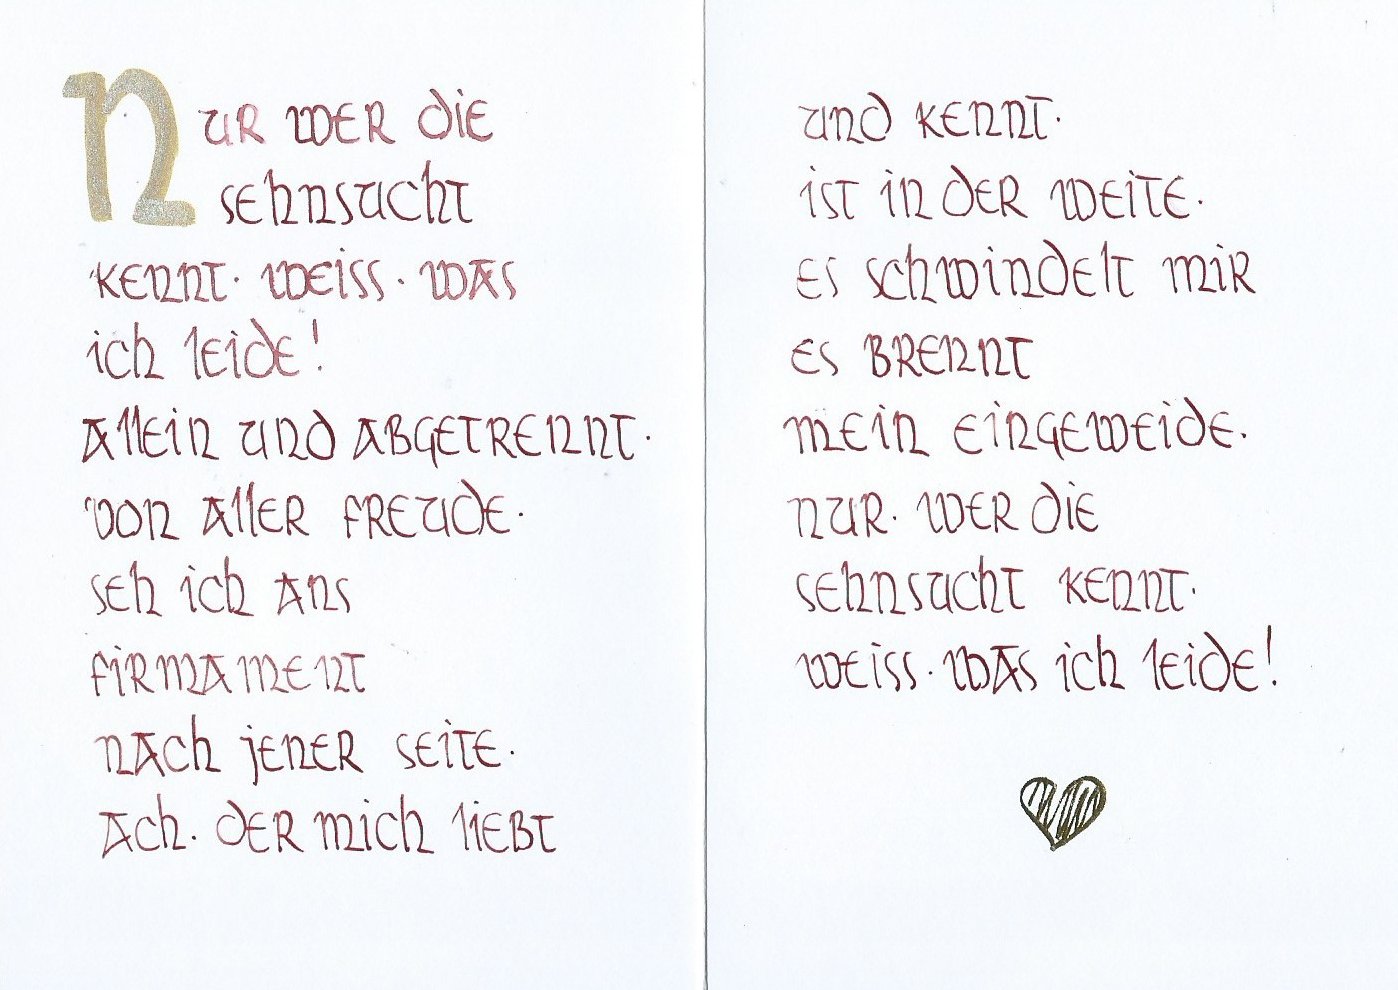 Nur wer die
Sehnsucht
kennt· weiss· was
ich leide!
Allein und abgetrennt·
von aller Freude·
seh ich ans
Firmament
nach jener Seite·
Ach· der mich liebt
und kennt·
ist in der Weite·
Es schwindelt mir
es brennt
mein Eingeweide·
Nur· wer die
Sehnsucht kennt·
weiss· was ich leide!